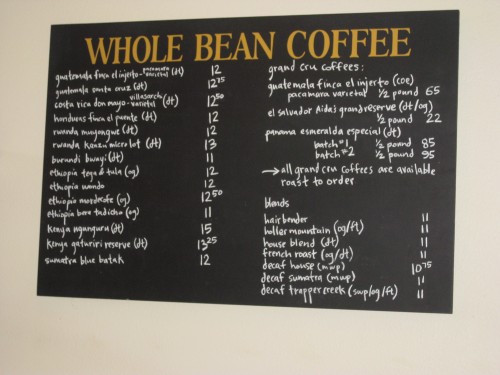 WHOLE BEAN COFFEE
guatemala finca el injerto - pacamara varietal (dt) 12
guatemala santa cruz (dt) 12 75
costa rica don mayo - villasarchi varietal (dt) 12 50
honduras finca el puente (dt) 12
rwanda muyongwe (dt) 12
rwanda kanzu micro lot (dt) 13
burundi bwayi (dt) 11
ethiopia tega & tula (og) 12
ethiopia wondo 12
ethiopia mordecofe (og) 12 50
ethiopia bere tadicho (og) 11
kenya nganguru (dt) 15
kenya gaturiri reserve (dt) 13 25
sumatra blue batak 12
grand cru coffees:
guatemala finca el injerto (coe)
pacamara varietal 1/2 pound 65
el salvador Aida's grand reserve (dt/og)
1/2 pound 22
panama esmeralda especial (dt)
batch #1 1/2 pound 85
batch #2 1/2 pound 95
→ all grand cru coffees are available
roast to order
blends
hairbender 11
holler mountain (og/ft) 11
house blend (dt) 11
french roast (og/dt) 11
decaf house (mwp) 10 75
decaf sumatra (mwp) 11
decaf trapper creek (swp/og/ft) 11